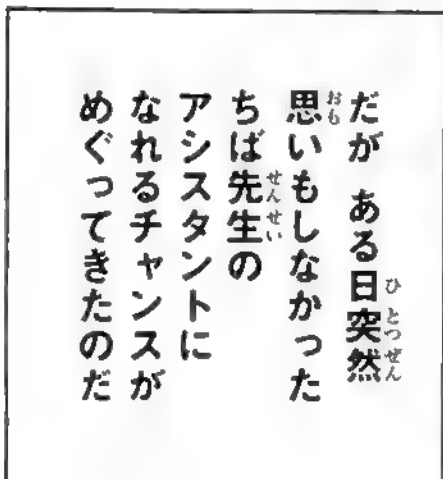 だが ある日突然
思いもしなかった
ちば先生の
アシスタントに
なれるチャンスが
めぐってきたのだ